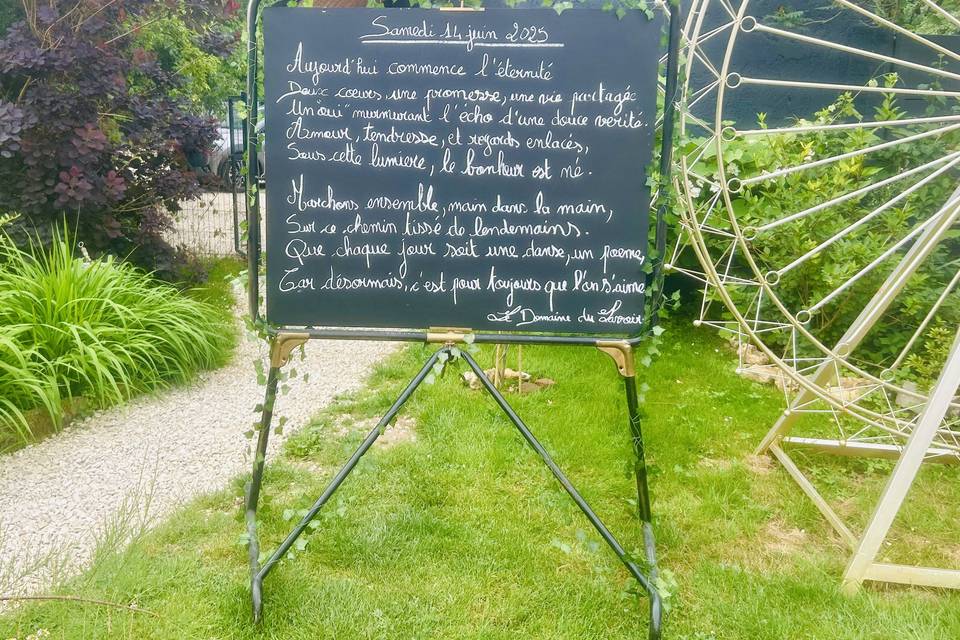 Samedi 14 juin 2025
Aujourd'hui commence l'éternité
Doux coeurs, une promesse, une vie partagée
Un "oui" murmurant l'écho d'une douce vérité.
Amour, tendresse, et regards enlacés,
Sous cette lumière, le bonheur est né.
Marchons ensemble, main dans la main,
Sur ce chemin tissé de lendemains.
Que chaque jour soit une danse, un poème,
Car désormais, c'est pour toujours que l'on s'aime
Domaine du